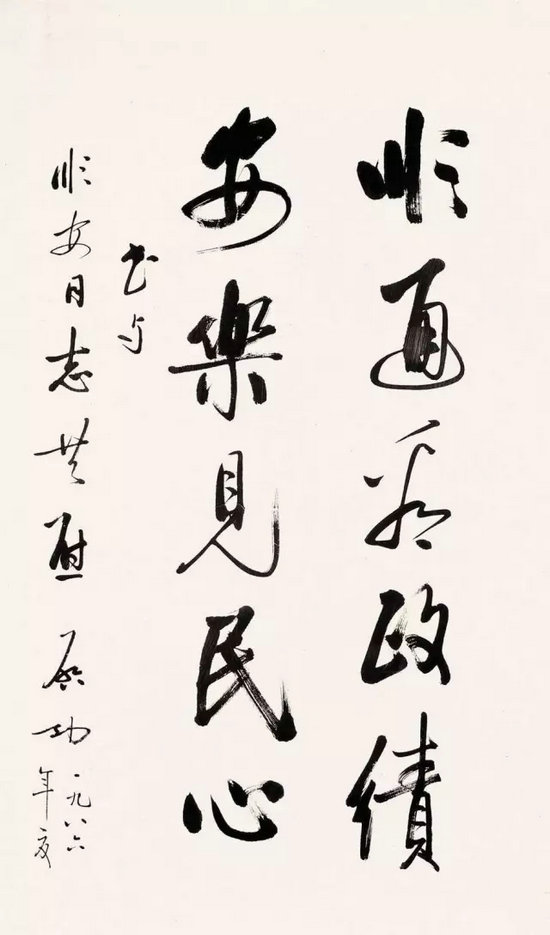 順通看政績
安樂見民心
書与
順安同志共慰 启功
一九八六
年夏